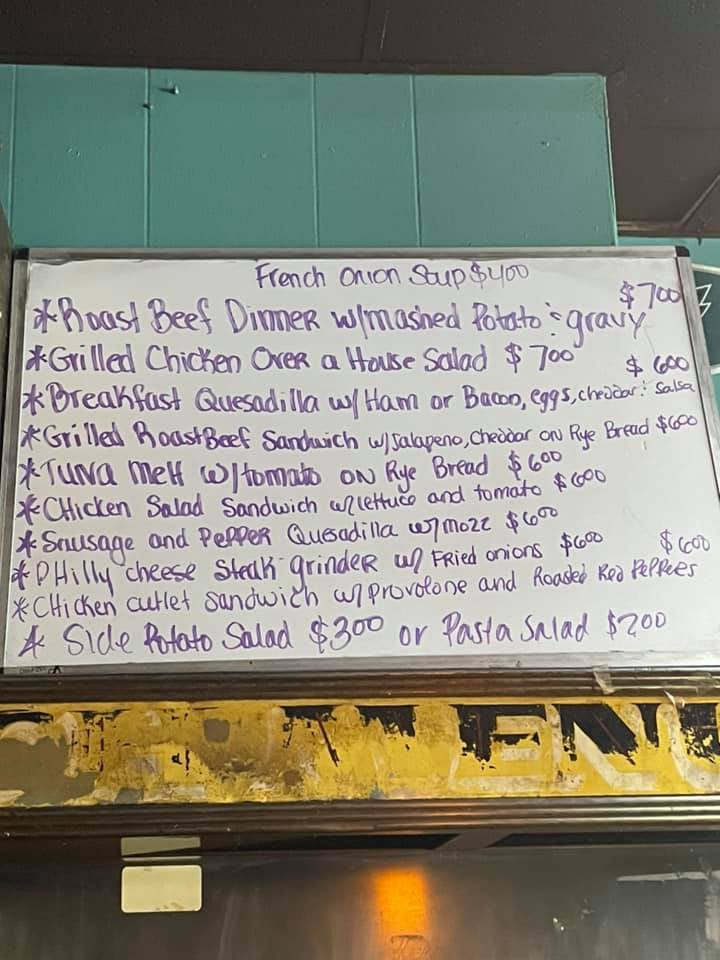 French Onion Soup $400
*Roast Beef Dinner w/mashed Potato & gravy $700
*Grilled Chicken Over a House Salad $700
*Breakfast Quesadilla w/ Ham or Bacon, eggs, cheddar & Salsa $600
*Grilled Roast Beef Sandwich w/Jalapeno, Cheddar on Rye Bread $600
*Tuna melt w/tomato on Rye Bread $600
*CHicken Salad Sandwich w/lettuce and tomato $600
*Sausage and Pepper Quesadilla w/ mozz $600
*PHilly cheese Steak grinder w/ Fried onions $600
*CHicken cutlet sandwich w/provolone and Roasted Red Peppers $600
* Side Potato Salad $300 or Pasta Salad $200